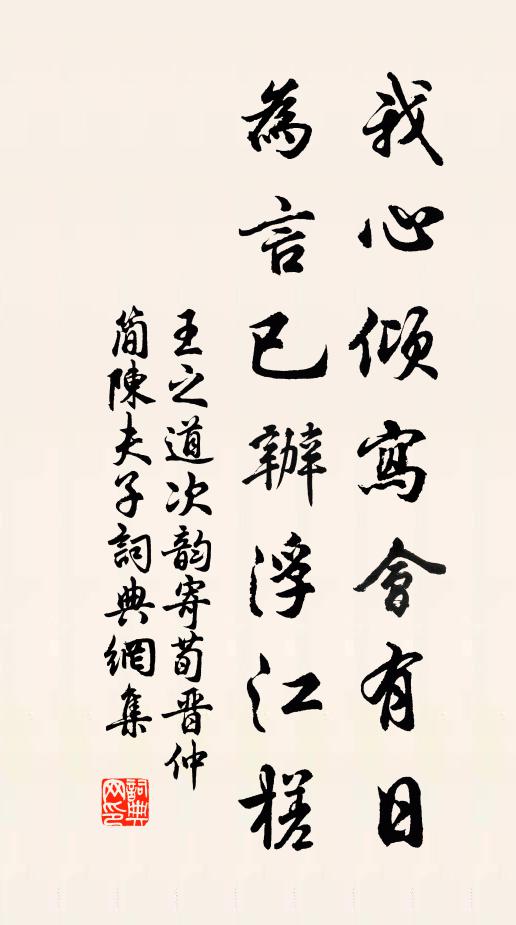 我心傾寫會有日
為言已辦浮江槎
王之道次韵寄荀晋仲
簡陳夫子詞典網集
詞典网印